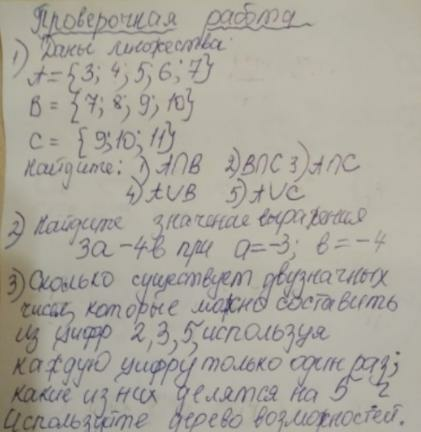 Проверочная работа
1) Даны множества:
A = {3; 4; 5; 6; 7}
B = {7; 8; 9; 10}
C = {9; 10; 11}
Найдите: 1) A∩B 2) B∩C 3) A∩C
4) A∪B 5) A∪C
2) Найдите значение выражения
3a - 4в при a = -3; в = -4
3) Сколько существует двузначных
чисел, которые можно составить
из цифр 2, 3, 5, используя
каждую цифру только один раз;
какие из них делятся на 5 - ?
Используйте дерево возможностей.